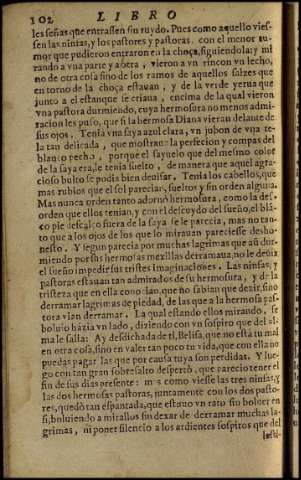 102 LIBRO
les señas que entrassen sin ruydo. Pues como aquello vies-
sen las ninfas, y los pastores y pastoras. con el menor ru-
mor que pudieron entraron en la choça, siguiendola: y mi
rando a vna parte y a otra, vieron a vn rincon vn lecho,
no de otra cosa sino de los ramos de aquellos salzes que
en torno de la choça estauan, y de la verde yerua que
junto a el estanque se criaua, encima de la qual vieron
vna pastora durmiendo, cuya hermosura no menos admi-
racion les puso, que si la hermosa Diana vieran delante de
sus ojos. Tenia vna saya azul clara, vn jubon de vna te-
la tan delicada, que mostraua la perfecion y compas del
blanco pecho, porque el sayuelo que del mesmo color
de la saya era, le tenia suelto, de manera que aquel agra-
cioso bulto se podia bien deuisar. Tenia los cabellos, que
mas rubios que el sol parecian, sueltos y sin orden alguna.
Mas nunca orden tanto adornò hermosura, como la des-
orden que ellos tenian, y con el descuydo del sueño, el blā-
co pie descalço fuera de la saya se le parecia, mas no tan-
to que a los ojos de los que lo mirauan pareciesse desho-
nesto. Y segun parecia por muchas lagrimas que aū dur-
miendo por sus hermosas mexillas derramaua, no le deuia
el sueño impedir sus tristes imaginaciones. Las ninfas, y
pastoras estauan tan admiradas de su hermosura, y de la
tristeza que en ella conocian, que no sabian que dezir, sino
derramar lagrimas de piedad, de las que a la hermosa pas-
tora vian derramar. La qual estando ellos mirando, se
boluio hàzia vn lado, diziendo con vn sospiro que del al-
ma le salia: Ay desdichada de ti, Belisa, que no està tu mal
en otra cosa, sino en valer tan poco tu vida, que con ella no
puedas pagar las que por causa tuya son perdidas. Y lue-
go con tan gran sobresalto despertò, que parecio tener el
fin de sus dias presente: mas como viesse las tres ninfas, y
las dos hermosas pastoras, juntamente con los dos pasto-
res, quedò tan espantada, que estuuo vn rato sin boluer en
si, boluiendo a mirallos sin dexar de derramar muchas la-
grimas, ni poner silencio a los ardientes sospiros que del